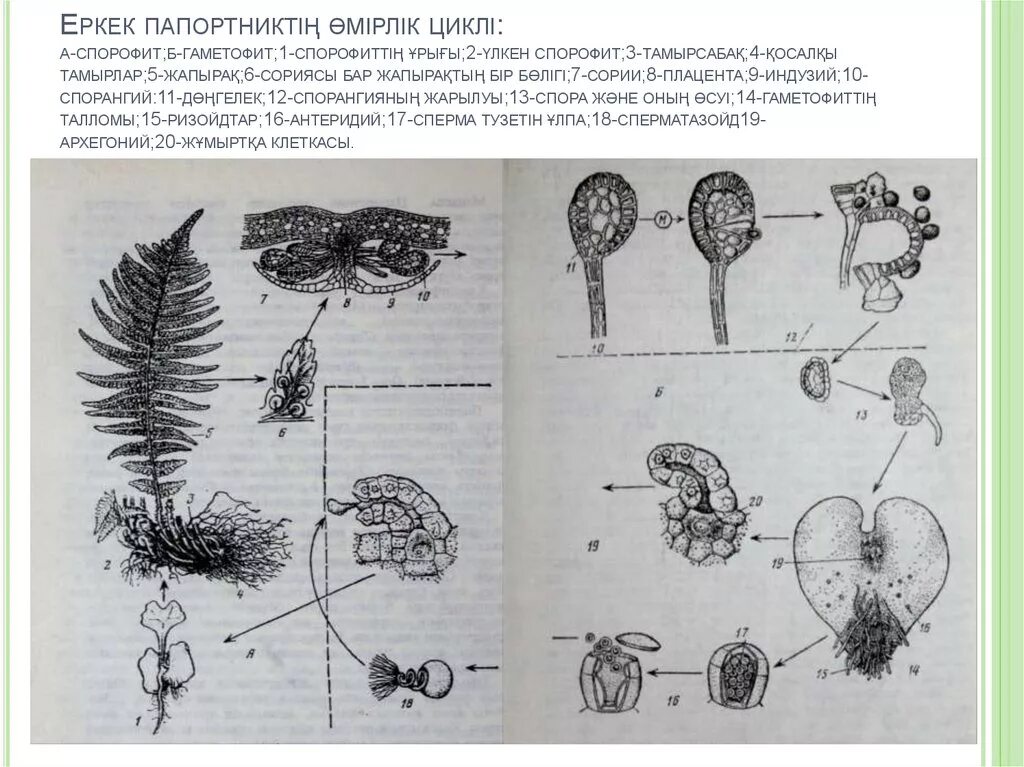 ЕРКЕК ПАПОРТНИКТІҢ ӨМІРЛІК ЦИКЛІ:
А-СПОРОФИТ;Б-ГАМЕТОФИТ;1-СПОРОФИТТІҢ ҰРЫҒЫ;2-ҮЛКЕН СПОРОФИТ;3-ТАМЫРСАБАҚ;4-ҚОСАЛҚЫ
ТАМЫРЛАР;5-ЖАПЫРАҚ;6-СОРИЯСЫ БАР ЖАПЫРАҚТЫҢ БІР БӨЛІГІ;7-СОРИИ;8-ПЛАЦЕНТА;9-ИНДУЗИЙ;10-
СПОРАНГИЙ:11-ДӨҢГЕЛЕК;12-СПОРАНГИЯНЫҢ ЖАРЫЛУЫ;13-СПОРА ЖӘНЕ ОНЫҢ ӨСУІ;14-ГАМЕТОФИТТІҢ
ТАЛЛОМЫ;15-РИЗОЙДТАР;16-АНТЕРИДИЙ;17-СПЕРМА ТУЗЕТІН ҰЛПА;18-СПЕРМАТАЗОЙД19-
АРХЕГОНИЙ;20-ЖҰМЫРТҚА КЛЕТКАСЫ.
7 8 9 10
6
5
3
2
4
А
1
18
11
М
10
12
Б
13
20
19
19
16
15
14
17
16